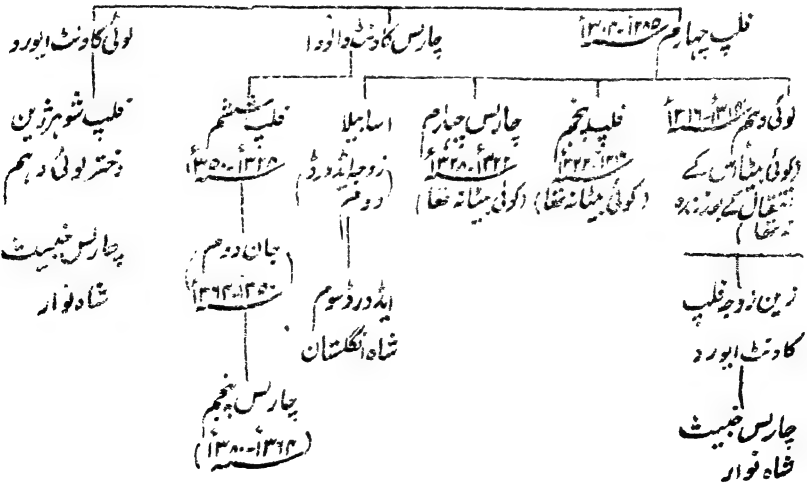 فلپ چہارم ۱۲۸۵-۱۳۰۳ء
چارلس کاونٹ وانودا
لوئی کاونٹ ایورد
لوئی دہم ۱۳۱۵ء-۱۳۱۶ء
(کوئی بیٹا اس کے
انتقال کے بعد زندہ
نہ تھا)
فلپ پنجم
۱۳۱۶-۱۳۲۲ء
(کوئی بیٹا نہ تھا)
چارلس چہارم
۱۳۲۲ء-۱۳۲۸ء
(کوئی بیٹا نہ تھا)
اسابیلا
(زوجہ ایڈورڈ
دوم)
فلپ ششم
۱۳۲۸ء-۱۳۵۰ء
فلپ شوہر ژین
دختر لوئی دہم
ژین زوجہ فلپ
کاونٹ ایورد
ایڈورڈ سوم
شاہ انگلستان
(جان دوم)
۱۳۵۰-۱۳۶۴ء
چارلس خبیث
شاہ نوار
چارلس خبیث
شاہ نوار
چارلس پنجم
(۱۳۶۴ء-۱۳۸۰ء)